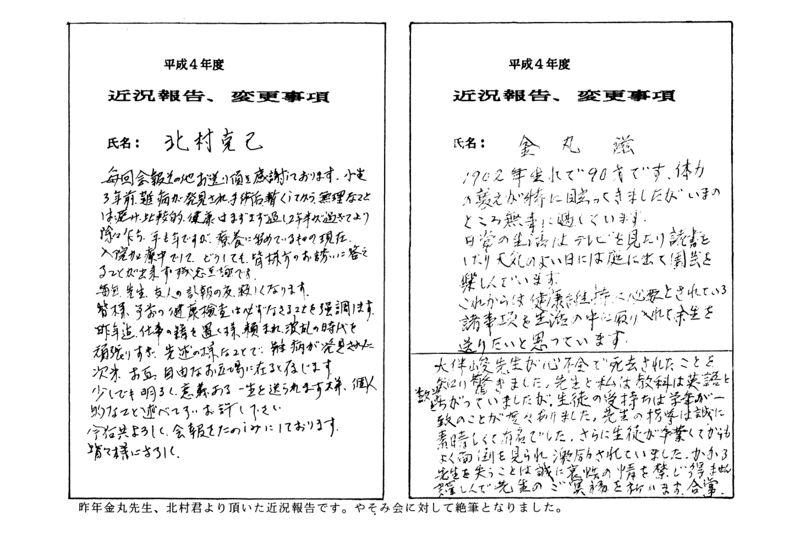 平成4年度
近況報告、変更事項
氏名: 北村克己
毎回会報其の他お送り頂き感謝しております。小生
3年前、難病が発見され
は避け、比較的、健康
入院加療中でして、どうしても、皆様方のお誘いに答え
ることが出来ず残念至極です。
毎回、先生、友人の訃報の度、寂しくなります。
皆様、年 の健康検査は必ずなさることを強調します。
昨年迄、仕事の籍を置く様、頼まれ、波乱の時代を
頑張りすぎ、先述の様なことで、難病が発見された
次第、お互、自由なお立場に在ると存じます
少しでも明るく、意義ある一生を送られます様、個人
的なこと述べてお許し下さい
今后共よろしく、会報をたのしみにしております。
皆々様によろしく、
平成4年度
近況報告、変更事項
氏名: 金丸 滋
1902年生れで90才です、体力
の衰えが特に目立ってきましたがいまの
ところ無事に過しています。
日常の生活はテレビを見たり読書を
したり天気のよい日には庭に出て園芸を
楽しんでいます。
これからは健康維持に必要とされている
諸事項を生活の中に取り入れて余生を
送りたいと思っています
大伴 先生が心不全で死去されたことを
知り驚きました。先生と私は教科は英語と
数学 ちがっていましたが、生徒の受持ちは学年が一
致のことが度々ありました。先生の指導は誠に
素晴しくて有名でした。さらに生徒が卒業してからも
よく面倒を見られ激励されていました。かかる
先生を失うことは誠に哀惜の情を禁じ得ません
謹しんで先生のご冥福を祈ります。合掌.
昨年金丸先生、北村君より頂いた近況報告です。やそみ会に対して絶筆となりました。